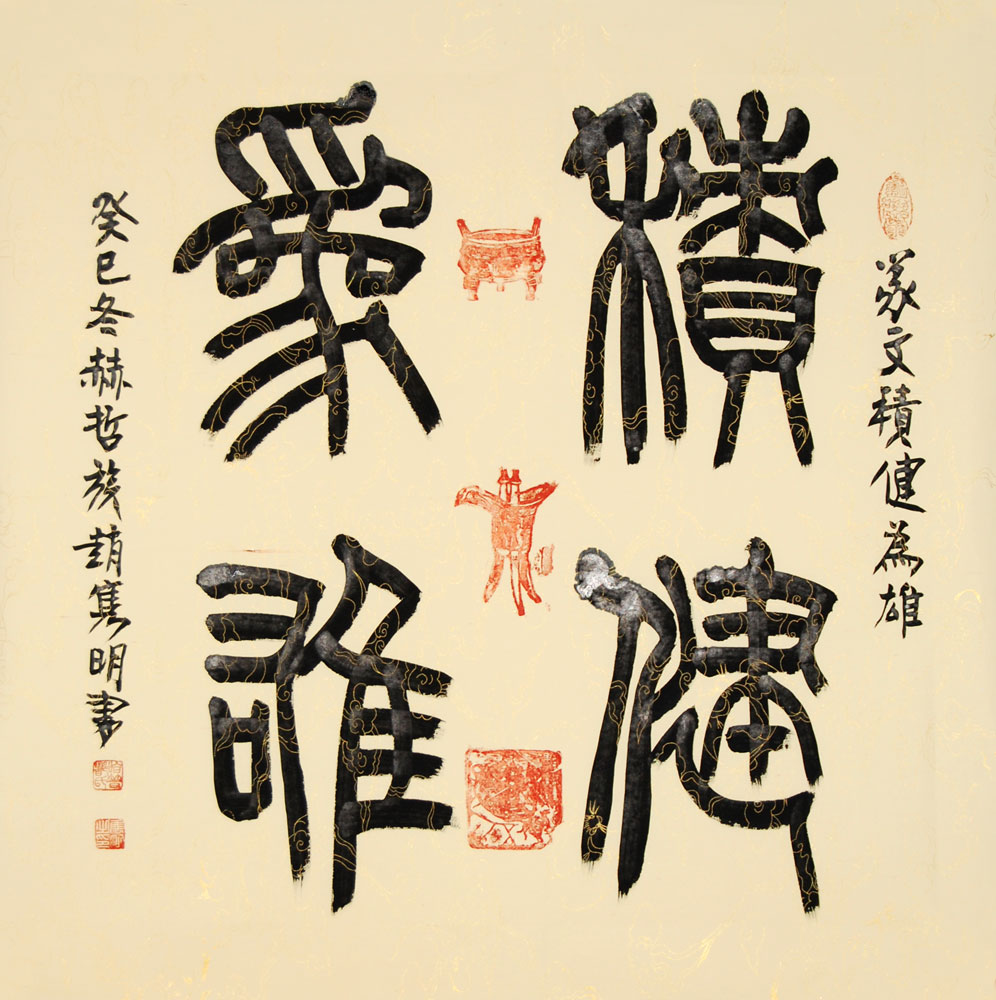 篆文積健為雄
積健
爲雄
癸巳冬赫哲族趙雋明書